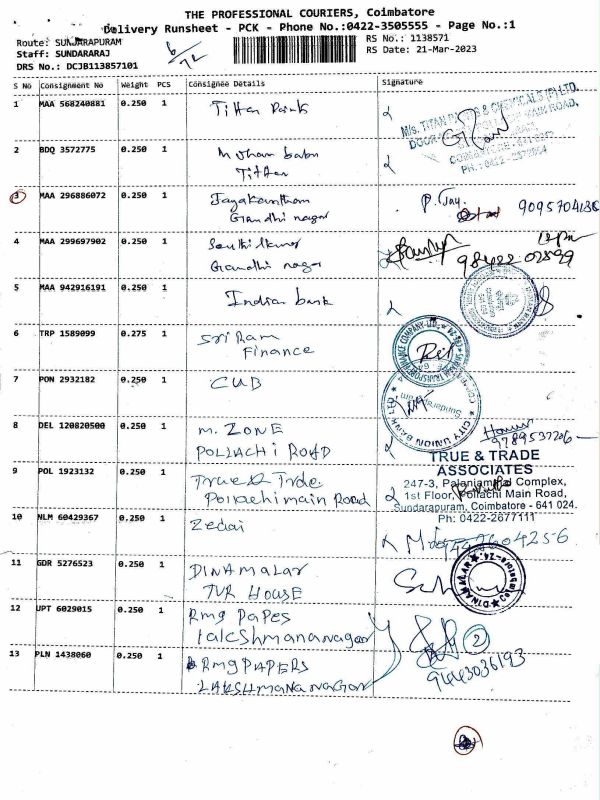 THE PROFESSIONAL COURIERS, Coimbatore
Delivery Runsheet - PCK - Phone No.:0422-3505555 - Page No.:1
Route: SUNDARAPURAM
Staff: SUNDARARAJ
DRS No.: DCJB113857101
RS No.: 1138571
RS Date: 21-Mar-2023
S No Consignment No Weight PCS Consignee Details Signature
1 MAA 568240881 0.250 1 Titan Paints
2 BDQ 3572775 0.250 1 Mohan babu
Titan
3 MAA 296886072 0.250 1 Jayakantham
Gandhi nagar
P. Jay.
9095704136
4 MAA 299697902 0.250 1 Senthilkumar
Gandhi nagar
98422 02899
5 MAA 942916191 0.250 1 Indian bank
6 TRP 1589099 0.275 1 Sri Ram
Finance
7 PON 2932182 0.250 1 CUB
CITY UNION BANK LTD
8 DEL 120820500 0.250 1 M. ZONE
POLLACHI ROAD
9789537206
9 POL 1923132 0.250 1 True & Trde
Pollachi main Road
TRUE & TRADE
ASSOCIATES
247-3, Palaniammal Complex,
1st Floor, Pollachi Main Road,
Sundarapuram, Coimbatore - 641 024.
Ph: 0422-2677111
10 NLM 60429367 0.250 1 Zedai
11 GDR 5276523 0.250 1 DINAMALAR
TVR HOUSE
DINAMALAR
12 UPT 6029015 0.250 1 Rmg Papes
lakshmananagar
2
13 PLN 1438060 0.250 1 RMG PAPERS
LAKSHMANA NAGAR
9443036193